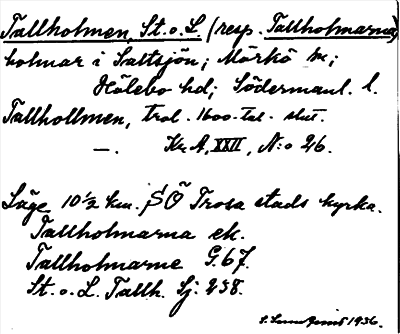 Tallholmen, St. o. L. (resp. Tallholmarna)
holmar i Saltsjön; Mörkö sn;
Hölebo hd; Södermanl. l.
Tallhollmen, trol. 1600-tal. slut.
—. Kr. A, XXII, N:o 26.
Läge 10 ½ km. SÖ Trosa stads kyrka.
Tallholmarna ek.
Tallholmarne G. 67.
St. o. L. Tallh. Sj. 238.
1936.